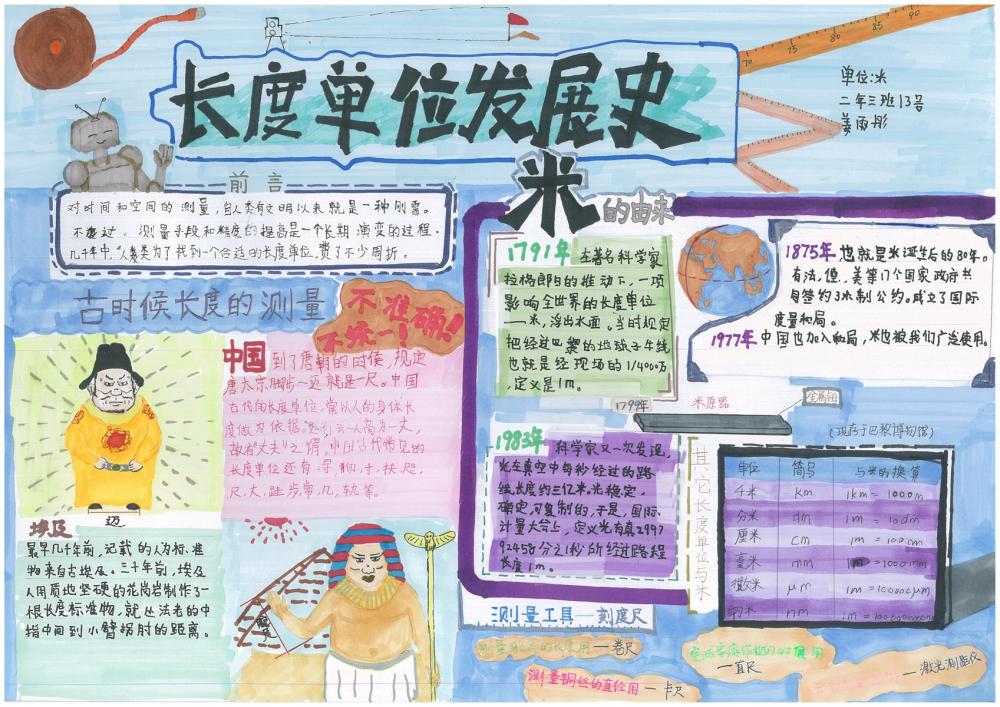 70 75 80 85 90
单位:米
二年三班13号
姜雨彤
长度单位发展史
前言
对时间和空间的测量,自人类有文明以来就是一种刚需。
不过,测量手段和精度的提高是一个长期演变的过程。
几千年中,人类为了找到一个合适的长度单位,费了不少周折。
古时候长度的测量
不准确!
不统一!
中国到了唐朝的时候,规定
唐太宗脚步一迈就是一尺。中国
古代的长度单位,常以人的身体长
度做为依据。
故有“丈夫”之谓。中国古代常见的
长度单位还有
尺、丈、跬、步、常、几、轨等。
迈
埃及
最早几千年前,记载的人为标准
物来自古埃及。三千年前,埃及
人用质地坚硬的花岗岩制作了一
根长度标准物,就
指中间到小臂拐肘的距离。
米的由来
1791年 在著名科学家
拉格郎日的推动下,一项
影响全世界的长度单位
——米,浮出水面。当时规定
把经过巴黎的地球子午线
也就是经现场的1/400
定义是1m。
1875年 也就是米诞生后的80年。
有法、德、美等17个国家政府共
同签约了米制公约。成立了国际
度量和局。
1977年 中国也加入和局,米也被我们广泛使用。
1799年
米原器
金属铂
(现存于巴黎博物馆)
1983年 科学家又一次发现,
光在真空中每秒经过的路
线长度约三亿米。光稳定,
确定,可复制的,于是,国际
计量大会上,定义光在真2997
92458分之1秒所经过路程
长度1m。
其它长度单位与米
单位 简号 与米的换算
千米 km 1km = 1000m
分米 dm 1m = 10dm
厘米 cm 1m = 100cm
毫米 mm 1m = 1000mm
微米 μm
纳米 nm
测量工具——刻度尺
——卷尺
测量铜丝的直径用——卡尺
——直尺
——激光测距仪